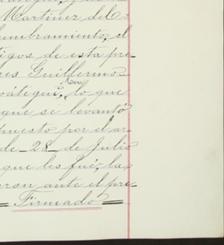 Martinez del C
umbramiento, el
igos de esta pre
res Guillermo
lo que
que se levantó
puesto por el ar
de 28 de Julio
que les fué, la
ron ante el pre
Firmado